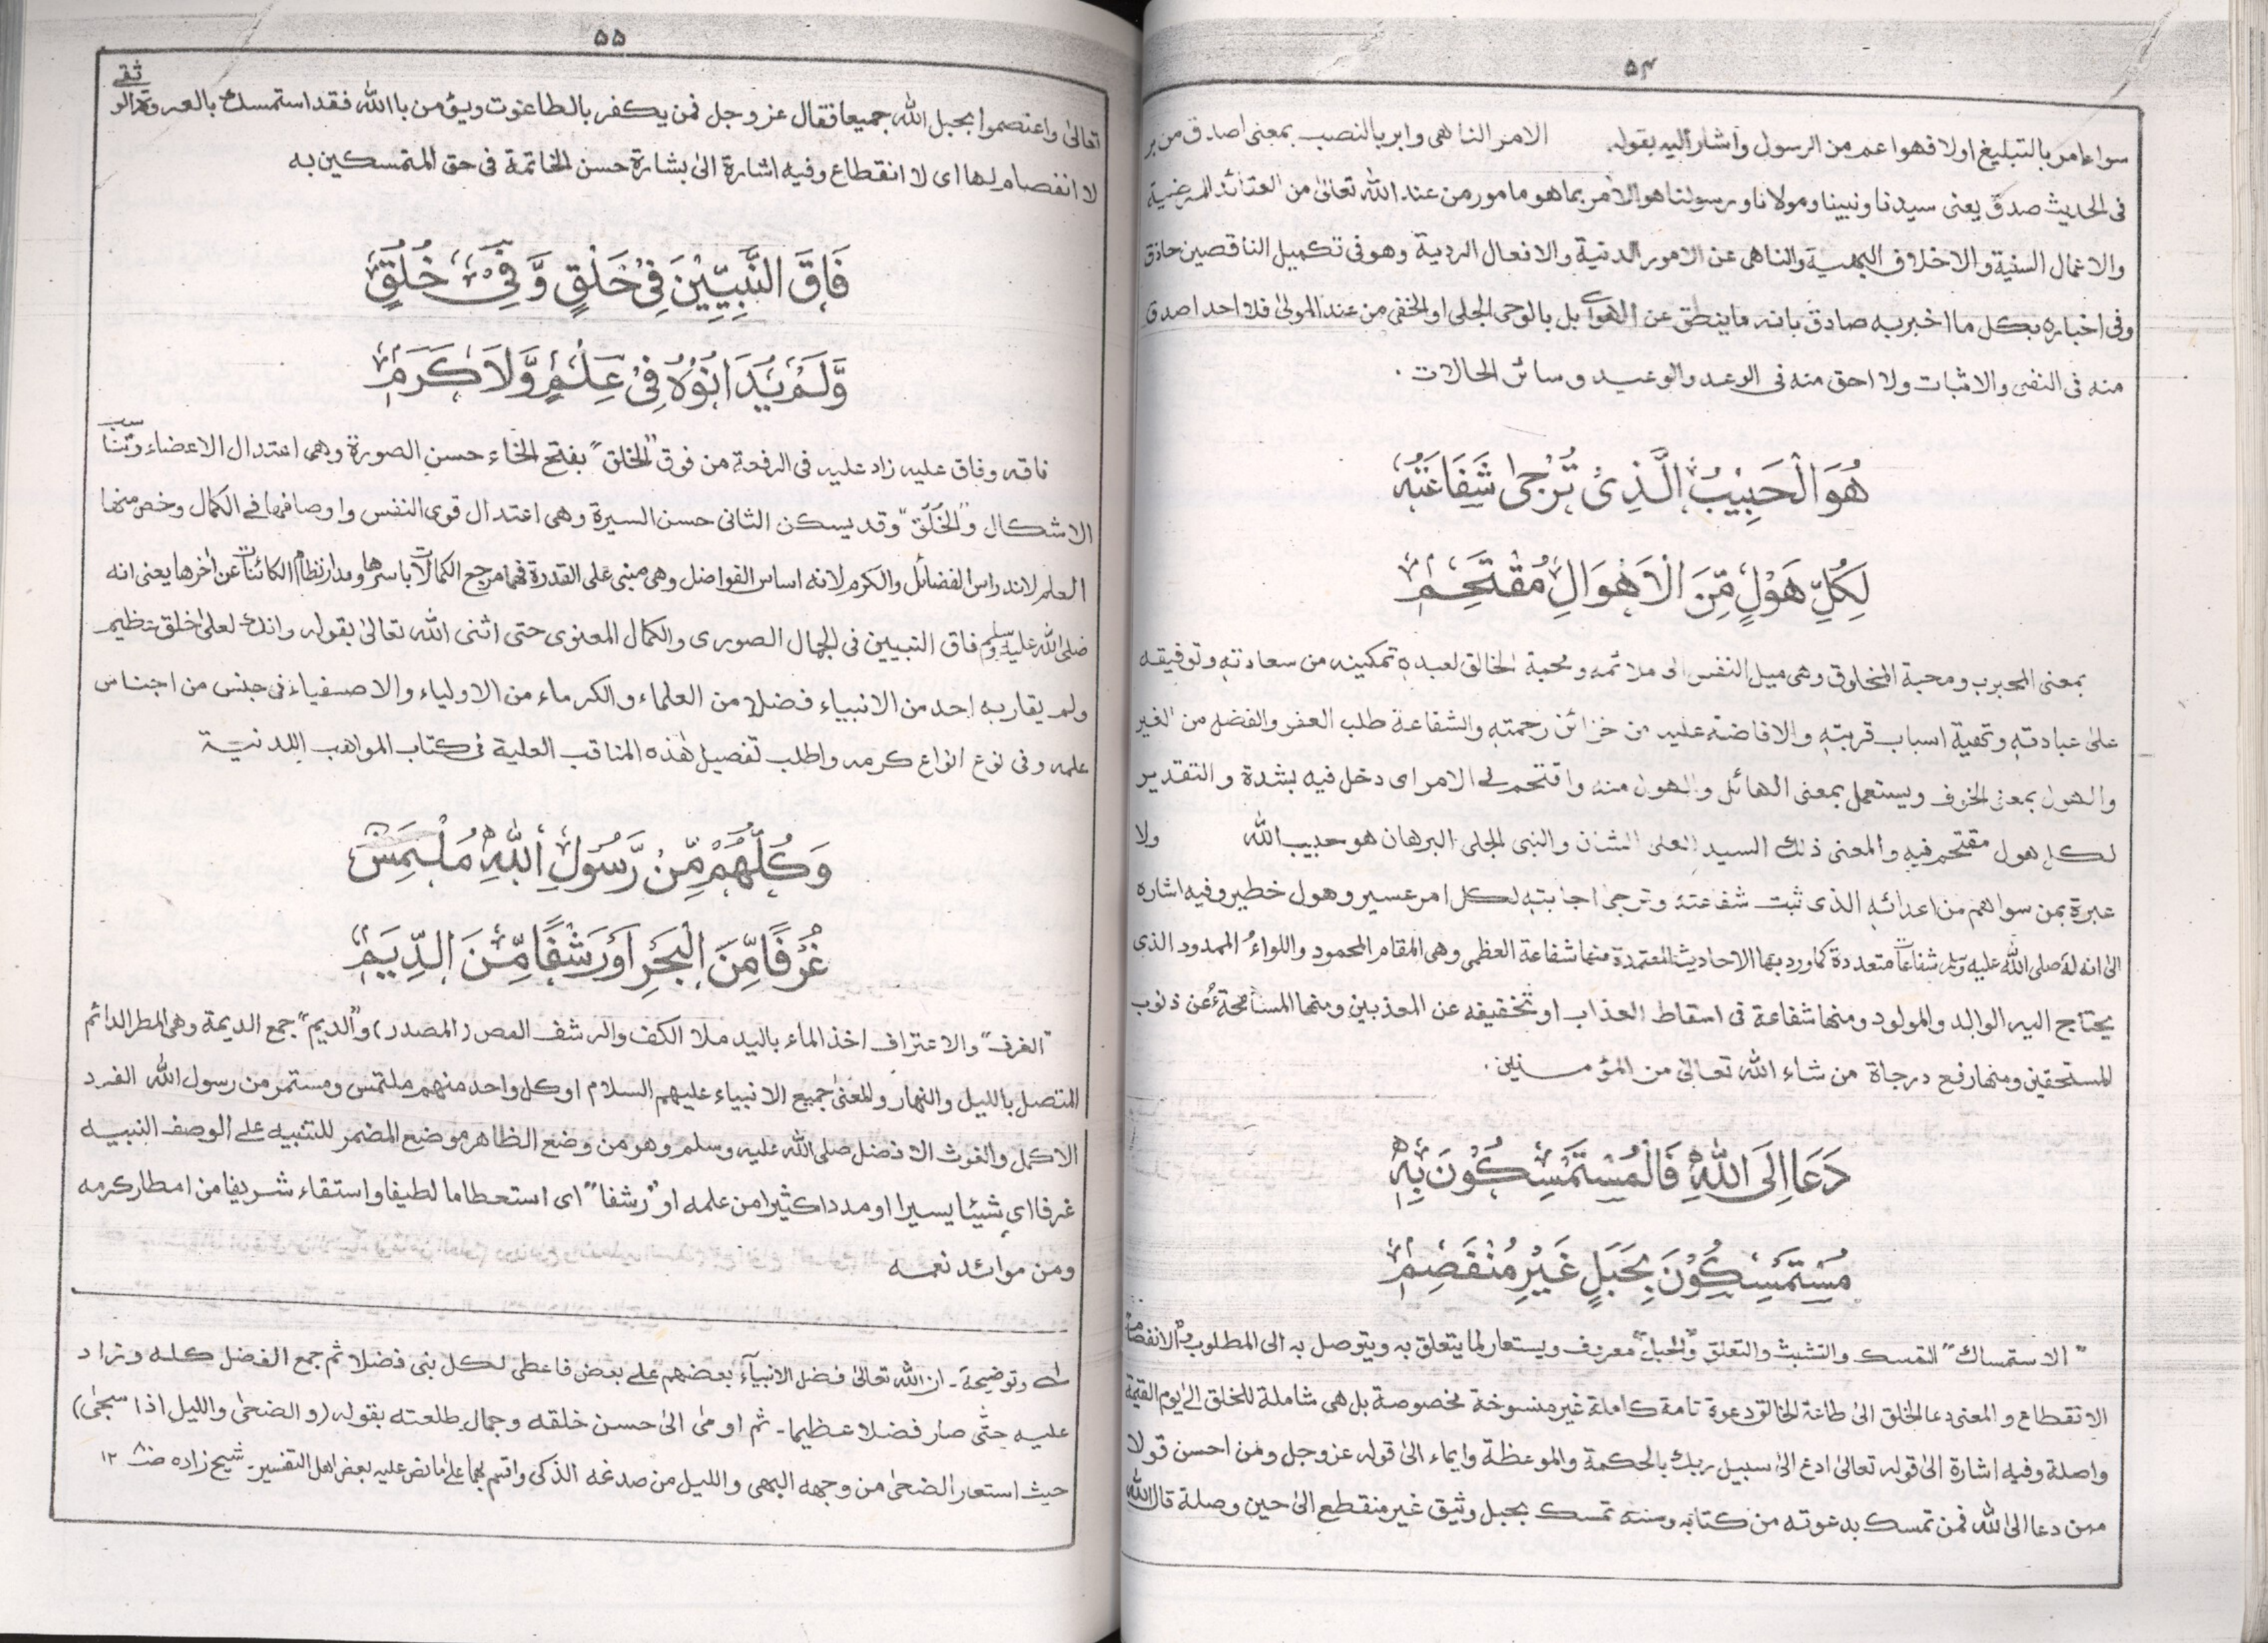 ۵۴
سواء امر بالتبليغ اولا فهوا عم من الرسول وأشار اليه بقوله الامر الناهى وابر بالنصب بمعنى اصدق من بر
فى الحديث صدق يعنى سيدنا ونبينا ومولانا ورسولنا هو الامر بما هو مامور من عند الله تعالىٰ من العقائد المرضية
والاعمال السنية والاخلاق البهية والناهى عن الامور الدنية والافعال الردية وهو فى تكميل الناقصين حاذق
وفى اخباره بكل ما اخبر به صادق بانه ما ينطق عن الاهوآئے بل بالوحى الجلى او الخفى من عند المولىٰ فلا احد اصدق
منه فى النفى والاثبات ولا احق منه فى الوعد والوعيد وسائر الحالات .
هُوَ الْحَبِيْبُ الَّذِىْ تُرْجىٰ شَفَاعَتُهٗ
لِكُلِّ هَوْلٍ مِّنَ الْاَهْوَالِ مُقْتَحِمٖ
بمعنى المحبوب ومحبة المخلوق وهى ميل النفس الى ملائمه ومحبة الخالق لعبده تمكينه من سعادته وتوفيقه
علىٰ عبادته وتهيئة اسباب قربته والافاضة عليه من خزائن رحمته والشفاعة طلب العفو والفضل من الغير
والهول بمعنى الخوف ويستعمل بمعنى الهائل والهون منه واقتحم فى الامر اى دخل فيه بشدة والتقدير
لكل هول مقتحم فيه والمعنى ذلك السيد العلى الشان والنبى الجلى البرهان هو حبيب الله ولا
عبرة بمن سواهم من اعدائه الذى ثبت شفاعته وترجى اجابته لكل امر عسير وهول خطير وفيه اشاره
الىٰ انه له صلى الله عليه وسلم شفاعات متعددة كما ورد بها الاحاديث المعتمدة منها شفاعة العظمى وهى المقام المحمود واللواء الممدود الذى
يحتاج اليه الوالد والمولود ومنها شفاعة فى اسقاط العذاب او تخفيفه عن المعذبين ومنها المسامحة عن ذنوب
المستحقين ومنها رفع درجاة من شاء الله تعالىٰ من المؤمنين .
دَعَا اِلَى اللّٰهِ فَالْمُسْتَمْسِكُوْنَ بِهٖ
مُسْتَمْسِكُوْنَ بِحَبْلٍ غَيْرِ مُنْفَصِمٖ
"الاستمساك" التمسك والتشبث والتعلق و"الحبل" معروف ويستعار لما يتعلق به ويتوصل به الى المطلوب و"الانفصام"
الانقطاع والمعنى دعا الخلق الىٰ طاعة الخالق دعوة تامة كاملة غير منسوخة مخصوصة بل هى شاملة للخلق الىٰ يوم القيمة
واصلة وفيه اشارة الىٰ قوله تعالىٰ ادع الىٰ سبيل ربك بالحكمة والموعظة وايماء الىٰ قوله عزوجل ومن احسن قولا
ممن دعا الى الله فمن تمسك بدعوته من كتابه وسنته تمسك بحبل وثيق غير منقطع الىٰ حين وصلة قال الله
۵۵
تعالىٰ واعتصموا بحبل الله جميعا فقال عزوجل فمن يكفر بالطاغوت ويؤمن باالله فقد استمسك بالعروة الو ثقى
لا انفصام لها اى لا انقطاع وفيه اشارة الىٰ بشارة حسن الخاتمة فى حق المتمسكين به
فَاقَ النَّبِيِّيْنَ فِىْ خَلْقٍ وَّفِىْ خُلُقٍ
وَّلَمْ يُدَانُوْهُ فِىْ عِلْمٍ وَّلَا كَرَمٖ
فاقه وفاق عليه زاد عليه فى الرفعة من فوق "الخلق" بفتح الخاء حسن الصورة وهى اعتدال الاعضاء وتناسب
الاشكال و"الخُلُق" وقد يسكن الثانى حسن السيرة وهى اعتدال قوى النفس واوصافها فے الكمال وخص منها
العلم لانه راس الفضائل والكرم لانه اساس الفواضل وهى مبنى على القدرة فهما مرجع الكمالات باسرها ومدار نظام الكائنات عن اٰخرها يعنى انه
صلى الله عليه وسلم فاق النبيين فى الجمال الصورى والكمال المعنوى حتى اثنى الله تعالىٰ بقوله وانك لعلىٰ خلق عظيم
ولم يقاربه احد من الانبياء فضلا من العلماء والكرماء من الاولياء والاصفياء فى جنس من اجناس
علمه وفى نوع انواع كرمه واطلب تفصيل هٰذه المناقب العلية فى كتاب المواهب اللدنية
وَكُلُّهُمْ مِّنْ رَّسُوْلِ اللّٰهِ مُلْتَمِسٌ
غُرْفًا مِّنَ الْبَحْرِ اَوْ رَشْفًا مِّنَ الدِّيَمٖ
"الغرف" والاغتراف اخذ الماء باليد ملا الكف والرشف المص (المصدر) و"الديم" جمع الديمة وهى المطر الدائم
المتصل بالليل والنهار والمعنىٰ جميع الانبياء عليهم السلام او كل واحد منهم ملتمس ومستمر من رسول الله الفرد
الاكمل والغوث الافضل صلى الله عليه وسلم وهو من وضع الظاهر موضع المضمر للتنبيه على الوصف النبيه
غرفا اى شيئا يسيرا او مددا كثيرا من علمه او "رشفا" اى استعطاما لطيفا واستقاء شريفا من امطار كرمه
ومن موائد نعمه
لـه وتوضيحة۔ ان الله تعالىٰ فضل الانبيآء بعضهم على بعض فاعطى لكل نبى فضلا ثم جمع الفضل كله وزاد
عليه حتّٰى صار فضلا عظيما۔ ثم اومىٰ الىٰ حسن خلقه وجمال طلعته بقوله (والضحىٰ والليل اذا سجىٰ)
حيث استعار الضحىٰ من وجهه البهى والليل من صدغه الذكى واقسم بهما علىٰ ما نص عليه بعض اهل التفسير۔ شيخ زاده ۱۲